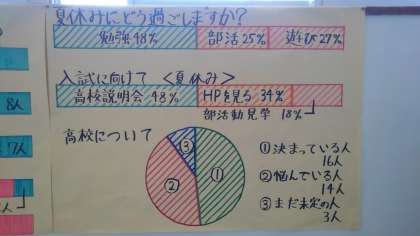 夏休みにどう過ごしますか?
勉強48% 部活25% 遊び27%
入試に向けて <夏休み>
高校説明会 48% HPを見る 34%
部活動見学 18%
高校について
①決まっている人
16人
②悩んでいる人
14人
③まだ未定の人
3人
③
②
①
8人
7人
人